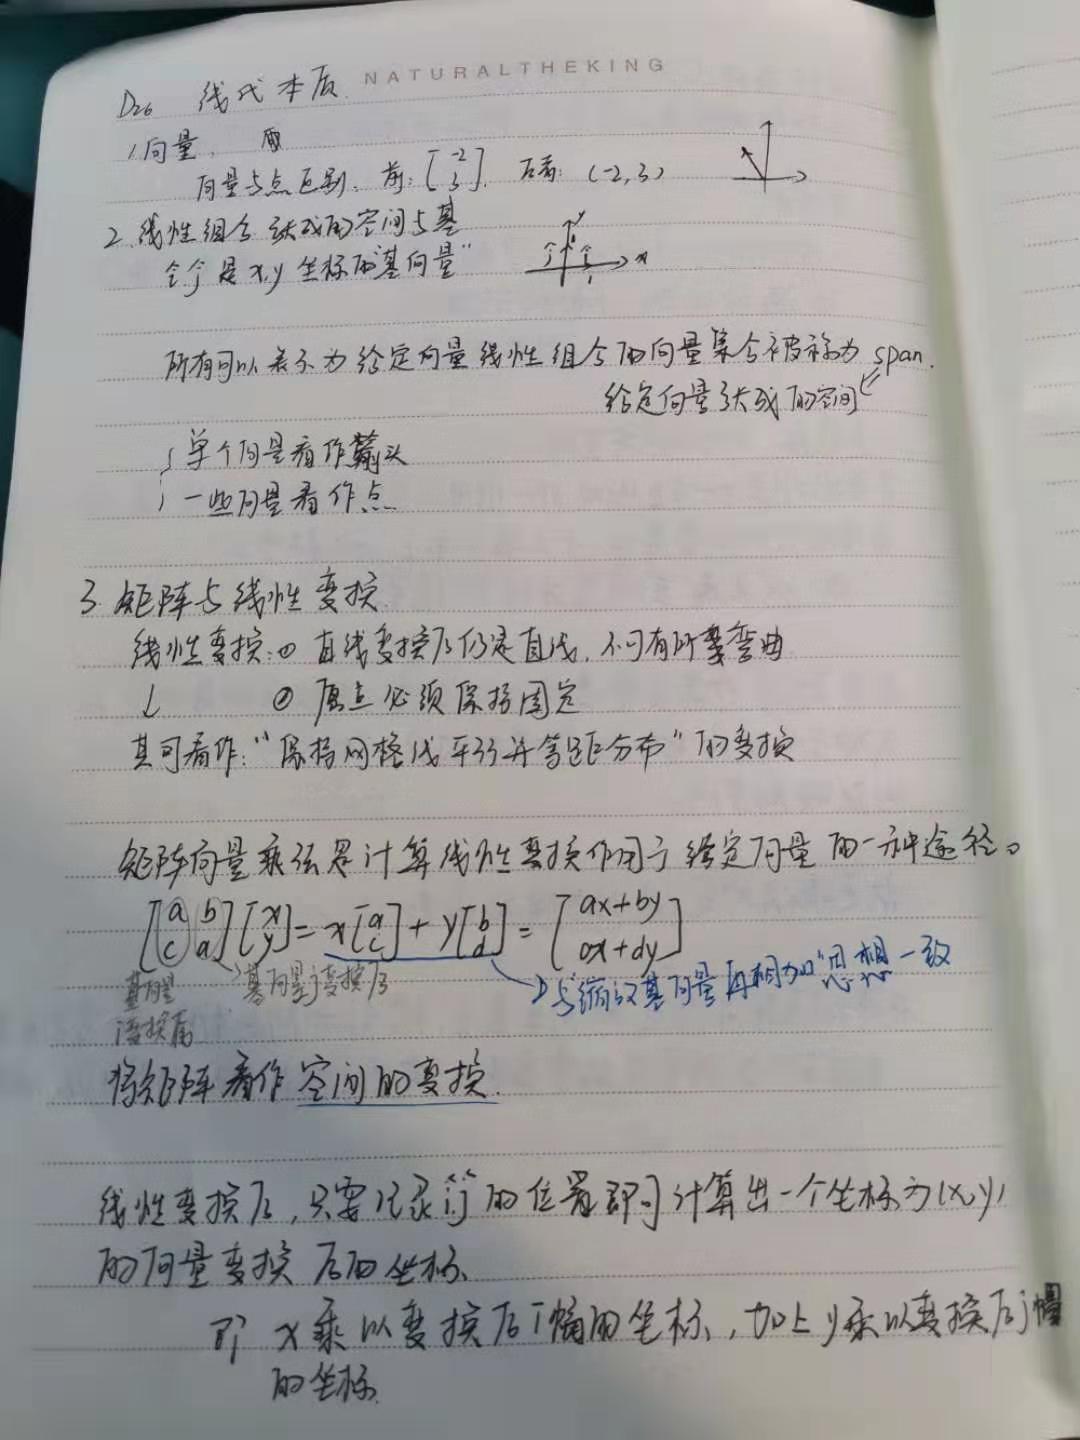 NATURALTHEKING
D26 线代本质
1 向量.
向量与点区别. 前: [-2 3]. 后者: (-2,3)
2. 线性组合 张成的空间与基
是 x,y 坐标的"基向量"
y
x
1
所有可以表示为给定向量线性组合的向量集合被称为 span.
给定向量张成的空间
单个向量看作箭头
一些向量看作点
3. 矩阵与线性变换
线性变换: ① 直线变换后仍是直线, 不可有所弯曲
↓ ② 原点必须保持固定
其可看作: "保持网格线平行并等距分布" 的变换
矩阵向量乘法是计算线性变换作用于给定向量的一种途径。
[a b c d][x y] = x[a c] + y[b d] = [ax+by cx+dy]
基向量 → 基向量j变换后
→ 与"缩放基向量再相加"思想一致
将矩阵看作空间的变换.
线性变换后, 只要记录 îĵ 的位置即可计算出一个坐标为(x,y)
的向量变换后的坐标.
即 x乘以变换后i帽的坐标, 加上y乘以变换后j帽
的坐标.